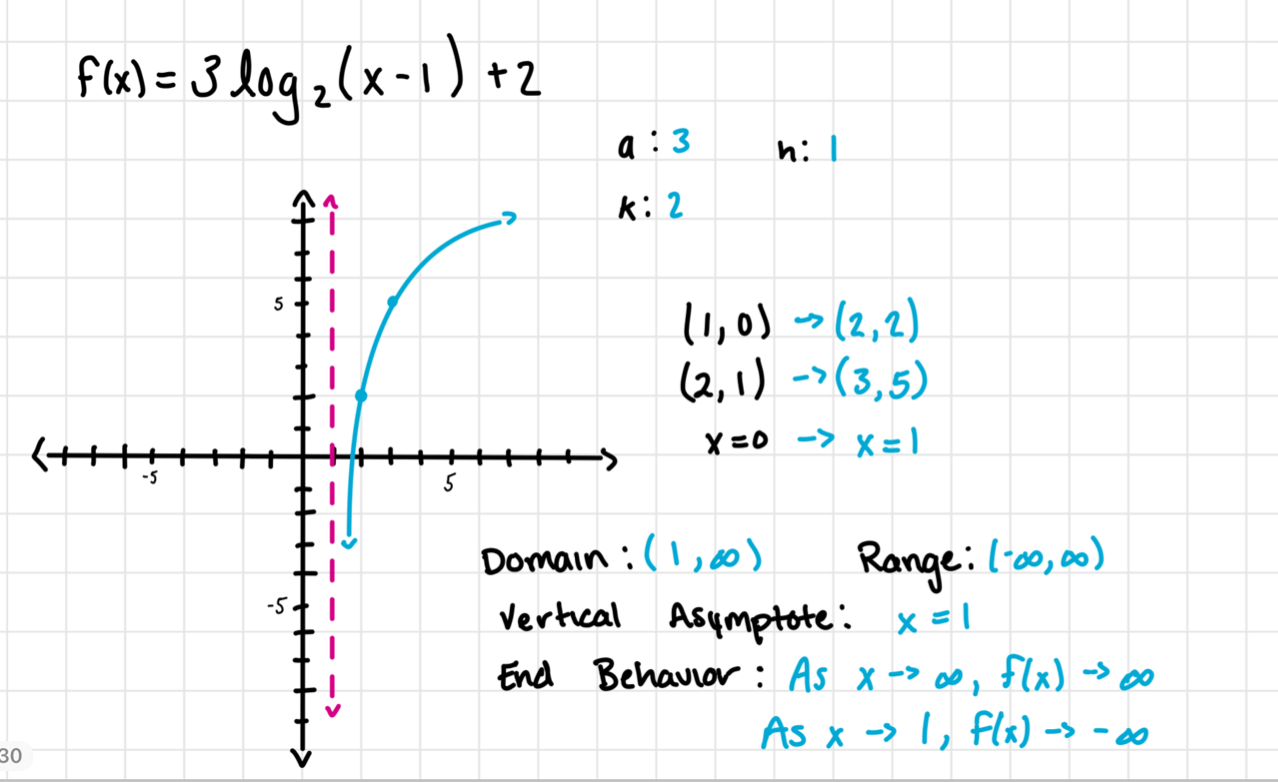 f(x) = 3 log₂(x-1) + 2
a : 3 h: 1
k: 2
5
-5
5
-5
(1,0) -> (2,2)
(2,1) -> (3,5)
x=0 -> x=1
Domain : (1,∞) Range: (-∞,∞)
Vertical Asymptote: x = 1
End Behavior : As x -> ∞, f(x) -> ∞
As x -> 1, f(x) -> -∞
30